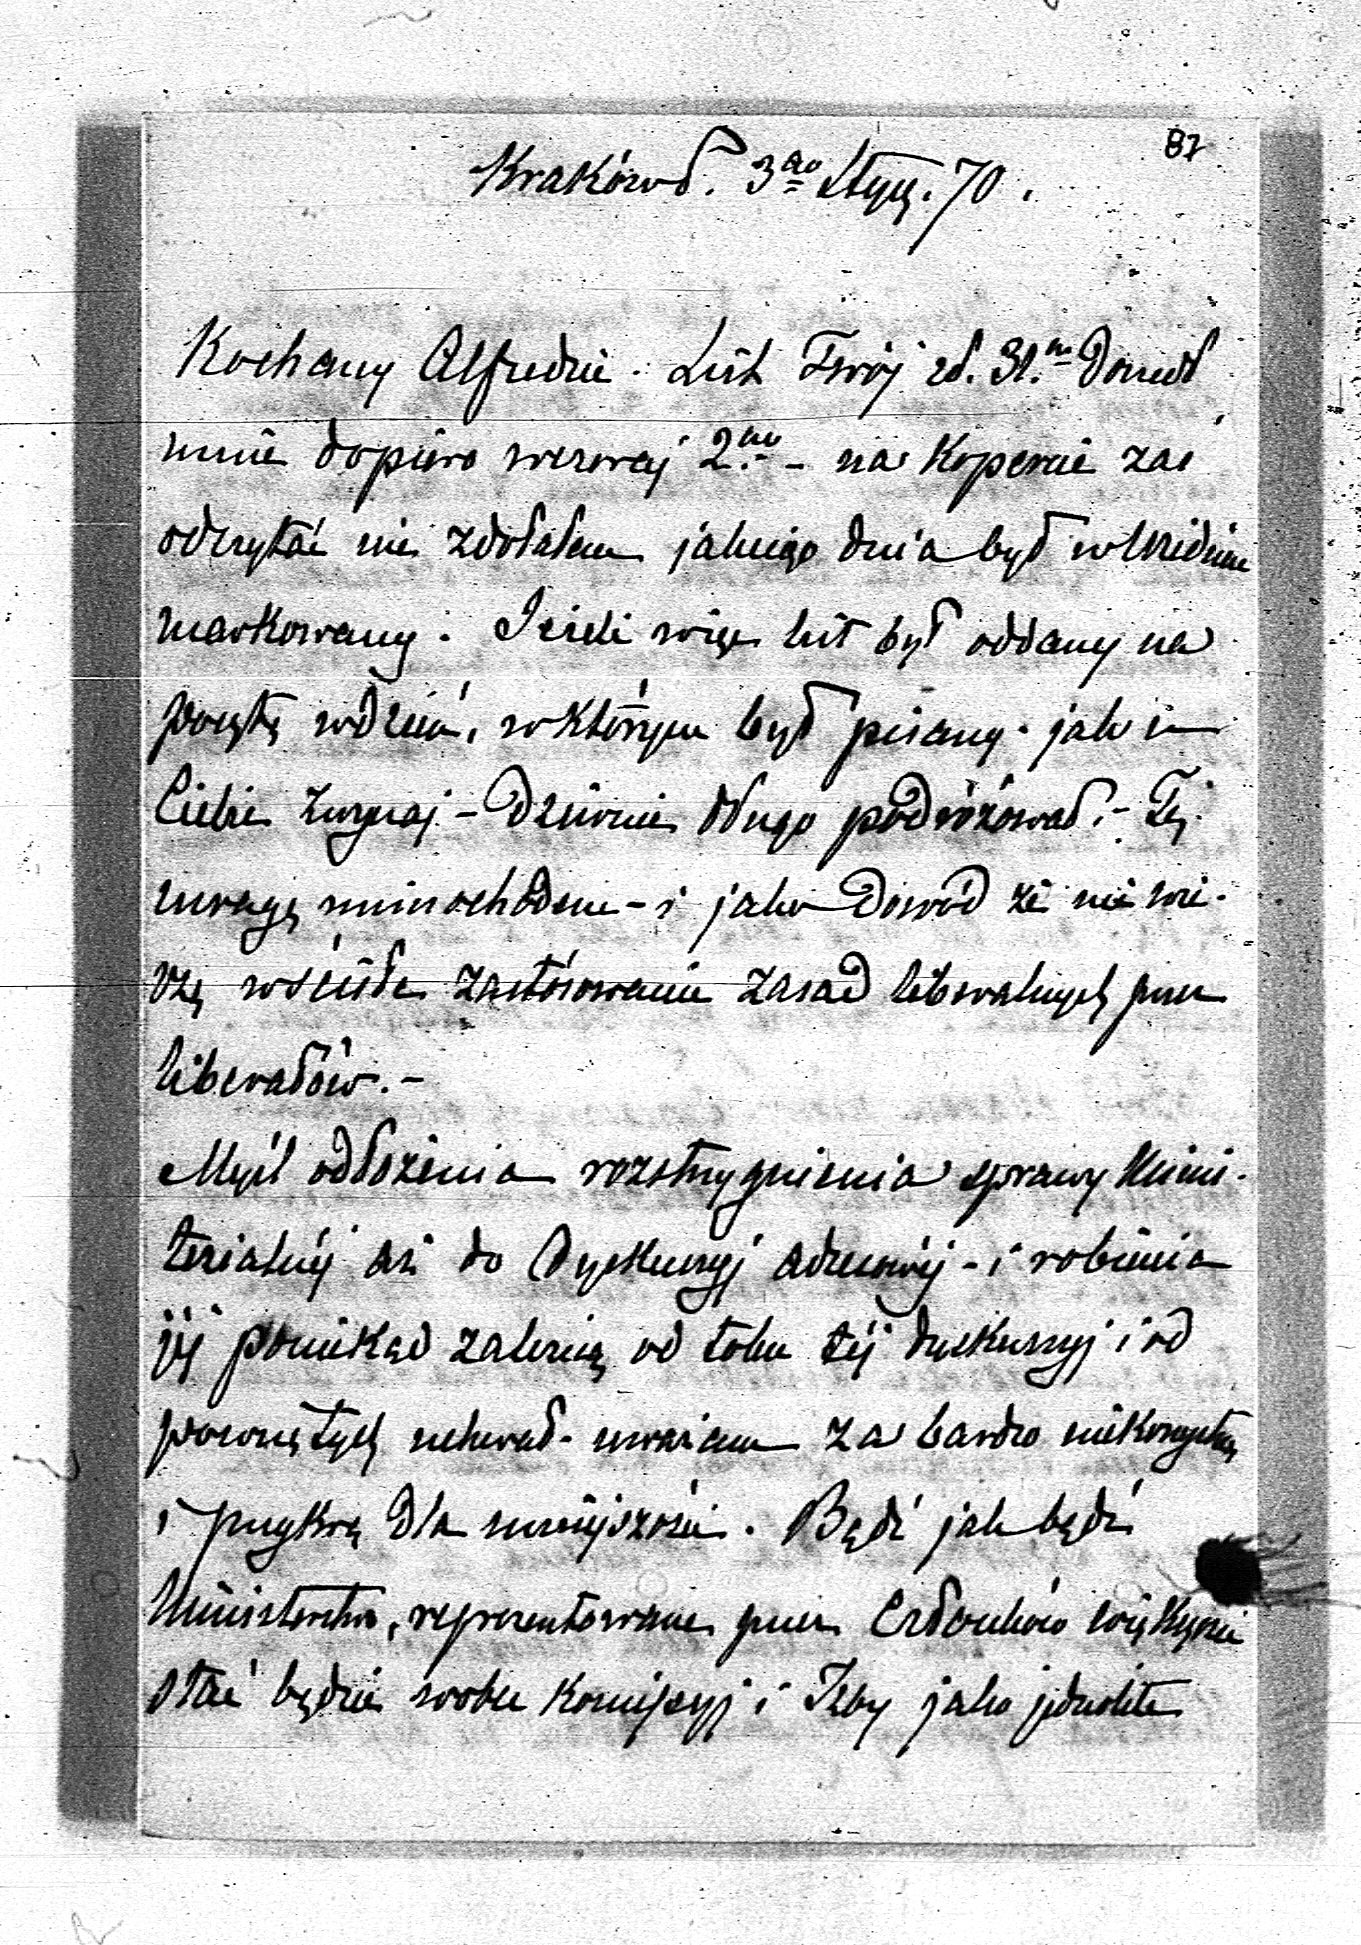 87
Kraków d. 3go Stycz. 70.
Kochany Alfredzie. List Twój z d. 31.go doszedł
mnie dopiero wczoraj 2.go - na kopercie zaś
odczytać nie zdołałem jakiego dnia był w Wiedniu
markowany. Jeżeli więc list był oddany na
pocztę w dniu, w którym był pisany - jak u
Ciebie zwyczaj - dziwnie długo podróżował. - Tę
uwagę mimochodem - i jako dowód że nie wie-
rzę w ścisłe zastósowanie zasad liberalnych przez
liberałów. -
Myśl odłożenia rozstrzygnienia sprawy Mini-
sterialnéj aż do dyskussyj adresowéj - i robienia
jéj poniekąd zależną od toku téj dyskussyj i od
powziętych uchwał - uważam za bardzo niekorzystną
i przykrą dla mniejszości. Bądź jak bądź
Ministerstwo, reprezentowane przez członków większości
stać będzie wobec Komissyj i Izby jako jednolite